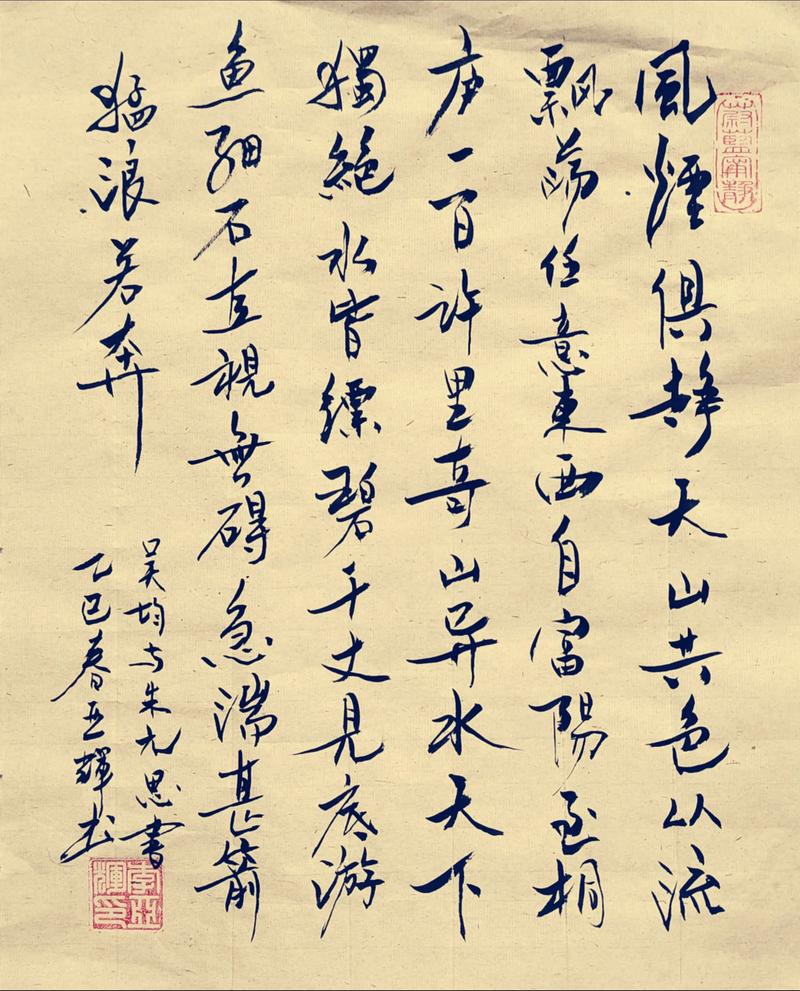 蔚藍寧靜
風煙俱靜天山共色從流
飄蕩任意東西自富陽至桐
庐一百許里奇山異水天下
獨絕水皆縹碧千丈見底游
魚細石直視無碍急湍甚箭
猛浪若奔
吴均与朱元思書
乙巳春亚輝书
李亚輝印